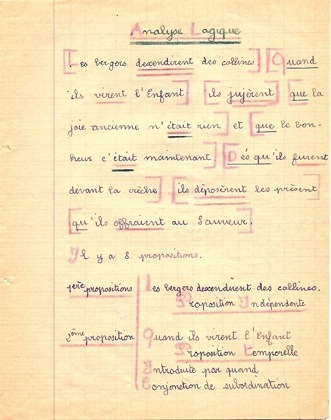 Analyse Logique
[Les bergers descendirent des collines] [Quand
ils virent l'Enfant] [ils jugèrent] [que la
joie ancienne n'était rien] et [que le bon-
heur c'était maintenant.] [Dès qu'ils furent
devant la crèche] [ils déposèrent les présent
qu'ils offraient au Sauveur].
Il y a 8 propositions.
1ère propositions
Les bergers descendirent des collines.
Proposition Indépendente
2ème proposition
Quand ils virent l'Enfant
Proposition temporelle
Introduite par quand
Conjonction de subordination